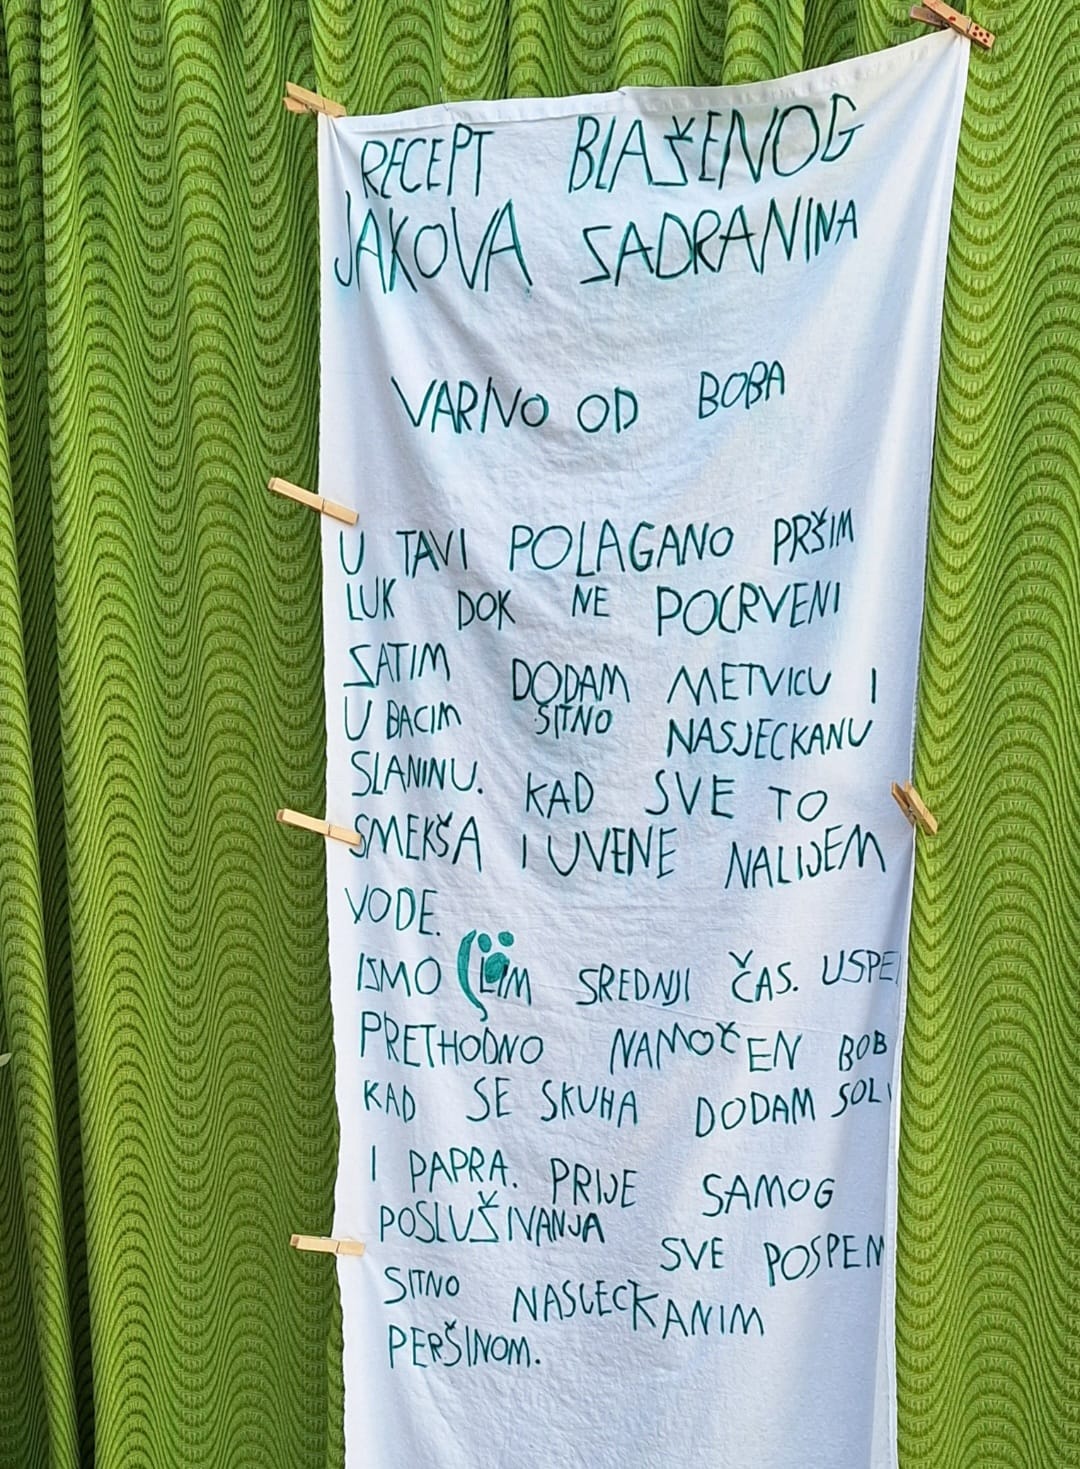 RECEPT BLAŽENOG
JAKOVA ZADRANINA
VARIVO OD BOBA
U TAVI POLAGANO PRŠIM
LUK DOK NE POCRVENI
ZATIM DODAM METVICU I
UBACIM SITNO NASJECKANU
SLANINU. KAD SVE TO
SMEKŠA I UVENE NALIJEM
VODE.
SREDNJI ČAS. USPE
PRETHODNO NAMOČEN BOB
KAD SE SKUHA DODAM SOLI
I PAPRA. PRIJE SAMOG
POSLUŽIVANJA SVE POSPEM
SITNO NASLECKANIM
PERŠINOM.